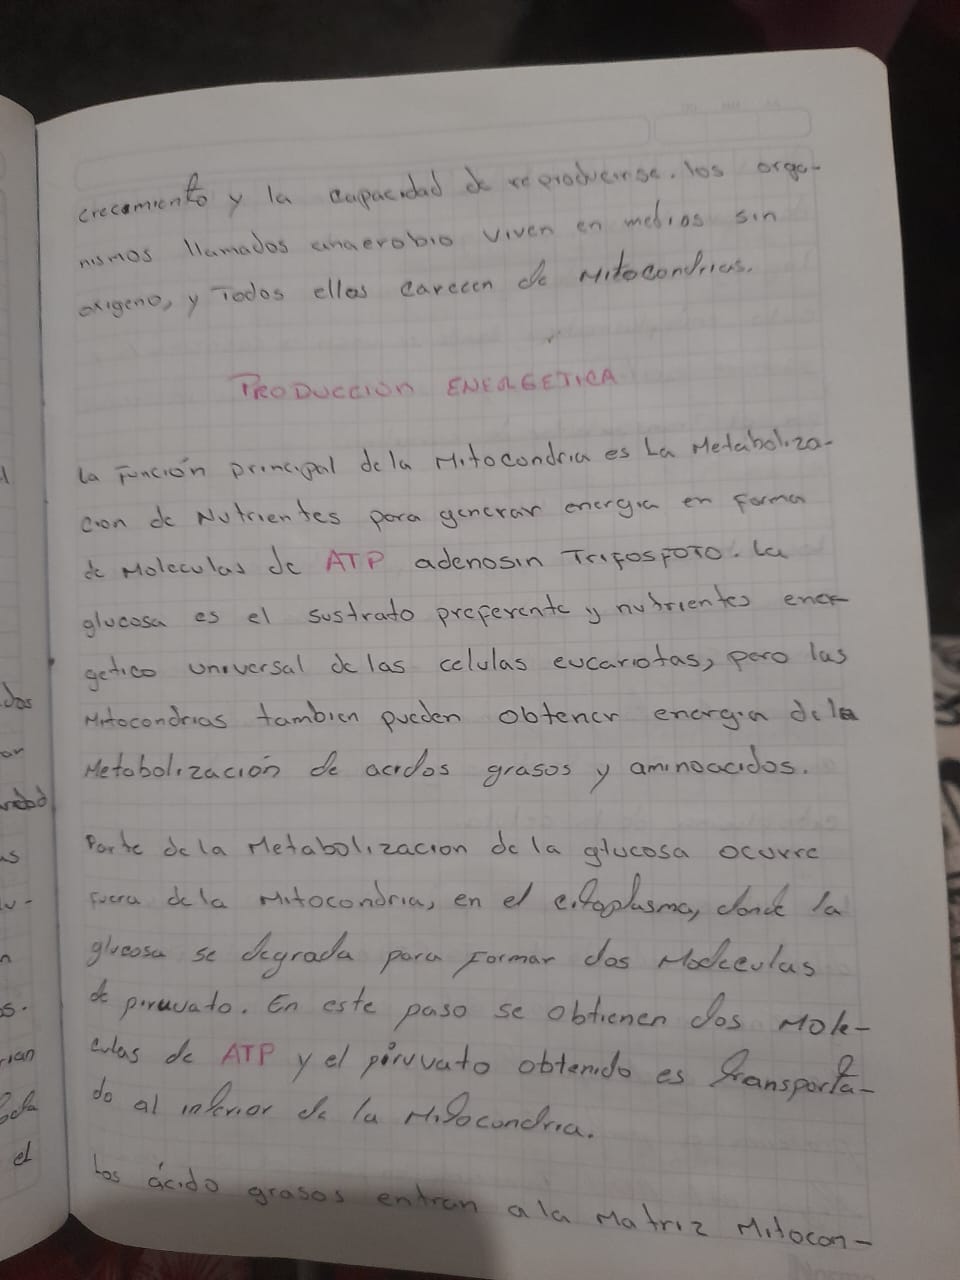 crecemiento y la capacidad de reproducirse. los orga-
nismos llamados anaerobio viven en medios sin
oxigeno, y Todos ellos carecen de Mitocondrias.
PRODUCCION ENERGETICA
La Función principal de la Mitocondria es La Metaboliza-
cion de Nutrientes para generar energia en Forma
de Moleculas de ATP adenosin TriFosFoTo. La
glucosa es el sustrato preferente y nutrientes ener-
getico universal de las celulas eucariotas, pero las
Mitocondrias tambien pueden obtener energia de la
Metabolización de acidos grasos y aminoacidos.
Parte de la Metabolizacion de la glucosa ocurre
Fuera de la Mitocondria, en el citoplasma, donde la
glucosa se degrada para Formar dos Moleculas
de piruvato. En este paso se obtienen dos Mole-
culas de ATP y el piruvato obtenido es transporta-
do al interior de la Mitocondria.
Los ácido grasos entran a la Matriz Mitocon-
dos
ar
as
lu-
n
s.
rian
el